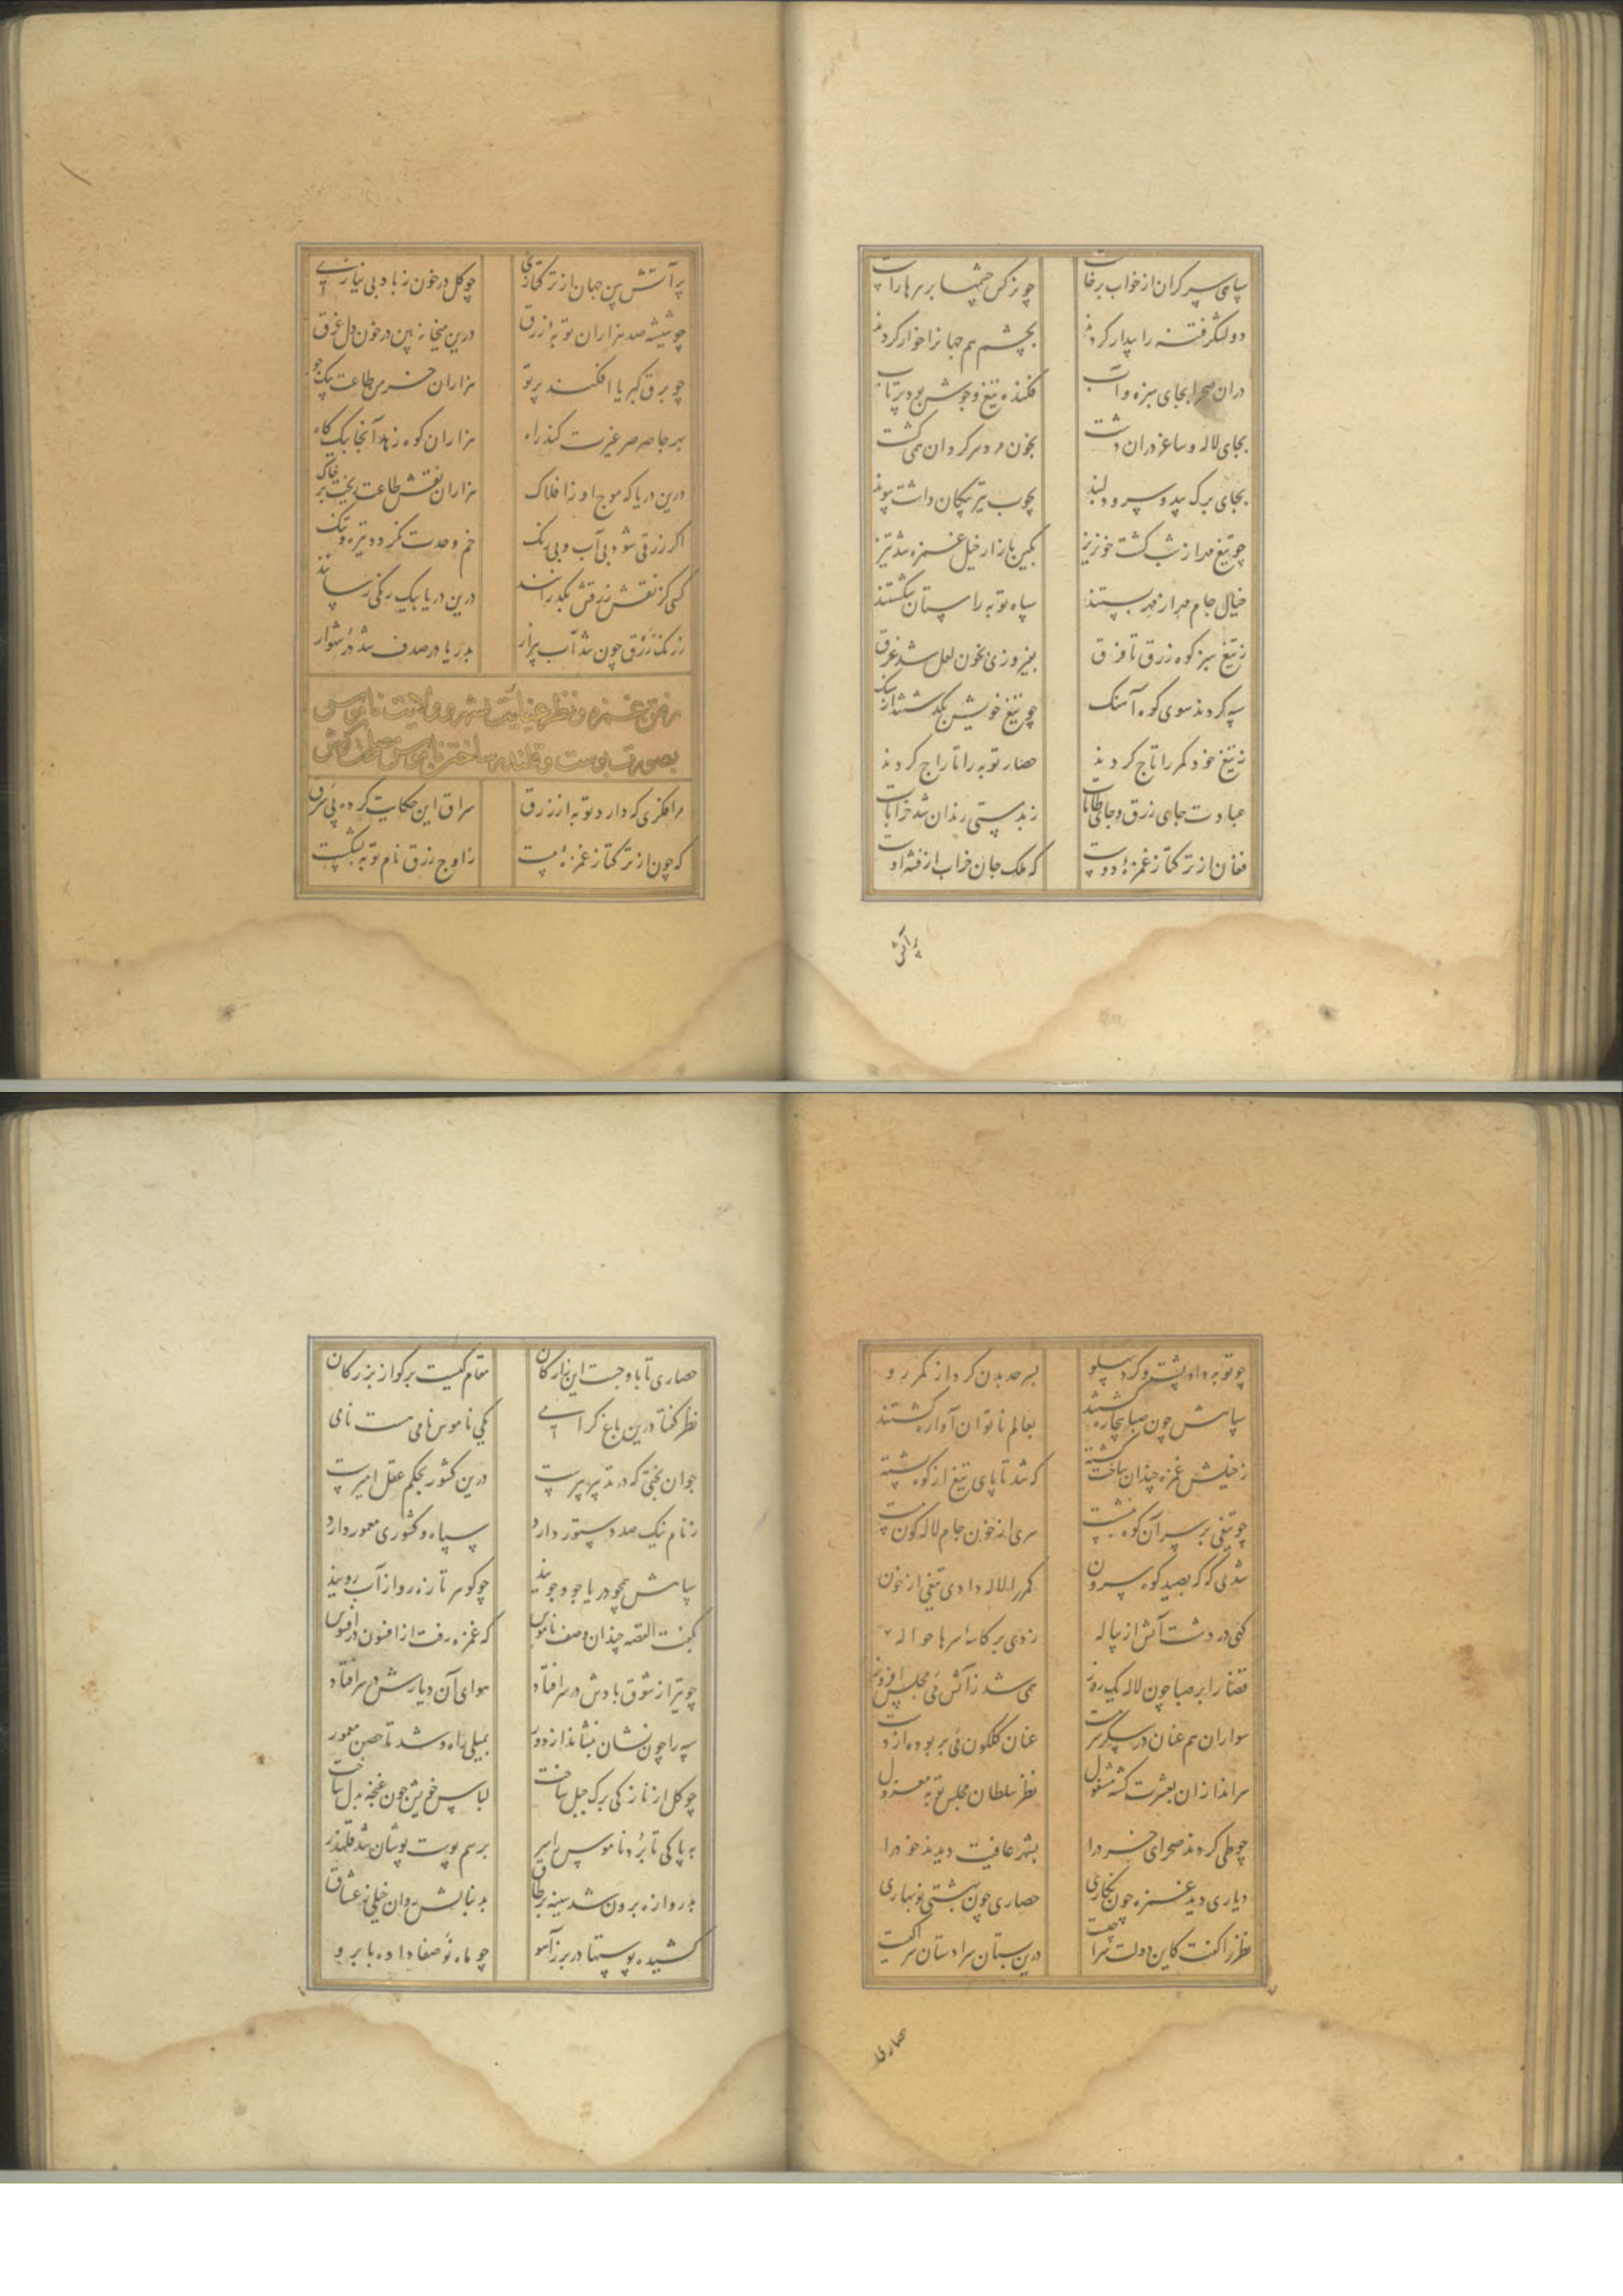 سپاهی سر گران از خواب برخاست چو نرگس چشمها بر سر ها راست
دو لشکر فتنه را بیدار کردند بچشم هم جهانرا خوار کردند
دران صحرا بجای سبزه و آب فکنده تیغ و جوشن بود پرتاب
بجای لاله و ساغر دران دشت بخون در سر کردان همی گشت
بجای برک بید و سرو دلبند بچوب تیر پیکان داشت پیوند
چو تیغ مهر از شب گشت خونریز بکین بازار خیل غمزه شد تیز
خیال جام مهر از مهر بستند سپاه توبه را ستان شکستند
ز تیغ سبز کوه زرق تا فرق بفیروزی بخون لعل شد غرق
سپه کردند سوی کوه آهنک چو تیغ خویش بگذشتند از سنک
ز تیغ خود کمر را تاج کردند حصار توبه را تاراج کردند
عبادت جای زرق و جای طامات ز بدمستی رندان شد خرابات
فغان از ترکتاز غمزهٔ دوست که ملک جان خراب از فتنه اوست
پر آتش
پر آتش بین جهان از ترکتازی چو کل در خون ز باد بی نیازی
چو شیشه صد هزاران توبهٔ زرق درین میخانه بین در خون دل غرق
چو برق کبریا افکند پرتو هزاران خرمن طاعت بیک جو
بهر جا صرصر غیرت کند راه هزاران کوه زهد آنجا بیک کاه
درین دریا که موج او ز افلاک هزاران نقش طاعت ریخت بر خاک
اگر زرقی شود بی آب و بی رنک خم وحدت نکردد تیره و تنک
کسی کز نقش زرقش بگذرانند درین دریا بیک رنگی رسانند
ز رنک زرق چون شد آب بیزار بدریا در صدف شد در شهوار
رفتن غمزه و نظر عنایت بشهر و ولایت ناموس
بصورت پوست و قلندر ساختن ناموس
مرا فکری که دارد توبه از زرق سراق این حکایت کرده پی سرق
که چون از ترکتاز غمزهٔ مست ز اوج زرق نام توبه بشکست
چو توبه داد پشت و کرد پهلو بسرحد بدن کرد از کمر رو
سپاهش چون صبا بیچاره گشتند بعالم ناتوان آواره گشتند
ز خیلش غمزه چندان ساخت کشته که شد تا پای تیغ از کوه پشته
چو تیغی بر سر آن کوه بنشست سری از خون جام لاله گون مست
شدی که که بصید کوه بیرون کمر را لاله دادی تیغی از خون
کهی در دشت آتش از پیاله زدی بر کاسهٔ سرها حواله
قضا را بر صبا چون لاله یک روز همی شد ز آتش می مجلس افروز
سواران هم عنان در سیر سرمست عنان گلگون می بربوده از دست
سراندازان بعشرت گشته مشغول نظر سلطان مجلس توبه معزول
چو طی کردند صحرای خرد را بشهر عافیت دیدند خود را
دیاری دید غمزه چون نگاری حصاری چون بهشتی نوبهاری
نظر را گفت کاین دولت سرا چیست درین بستان سرا دستان سرا کیست
حصاری
حصاری تا باوجست این نزارکان مقام کیست برگو از بزرگان
نظر گفتا درین باغ گرامی یکی ناموس نامی هست نامی
جوان بختی که در تدبیر پیرست درین کشور بحکم عقل امیرست
ز نام نیک صد دستور دارد سپاه و کشوری معمور دارد
سپاهش همچو دریا جود جویند چو گوهر تازه رو از آب رویند
بگفت القصه چندان وصف ناموس که غمزه رفت از افسون در افسوس
چو تیر از شوق بادش در سر افتاد هوای آن دیارش در سر افتاد
سپه را چون نشان بنشاند از دور بمیلی راه و شد تا حصن معمور
چو کل از نازکی برک جبل ساخت لباس خویش چون غنچه بدل ساخت
به پاکی تا برد ناموس را سر برسم پوست پوشان شد قلندر
بدروازه برون شد سینه بر طاق بدنبالش روان خیلی ز عشاق
کشیده پوستها در بر ز آهو چو ماه نو صفا داده بابرو